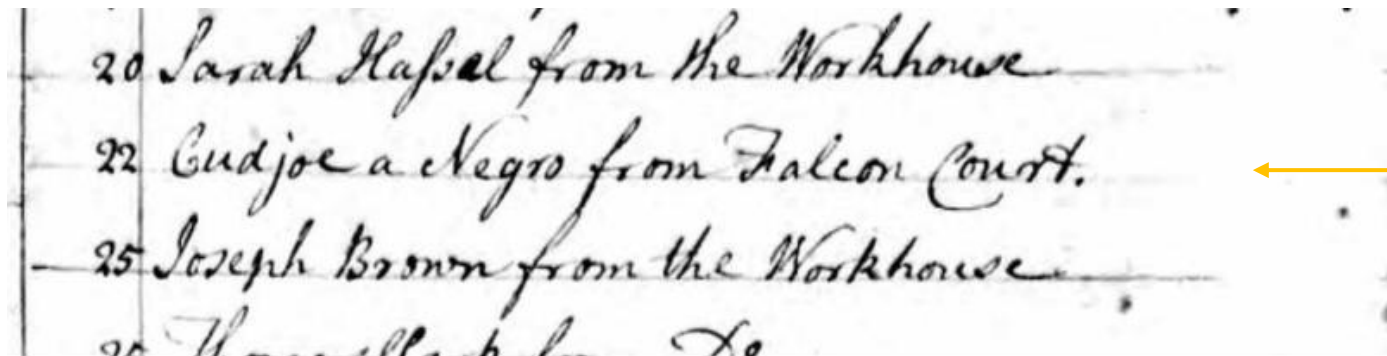 20 Sarah Haſsel from the Workhouse
22 Cudjoe a Negro from Falcon Court.
25 Joseph Brown from the Workhouse
Do